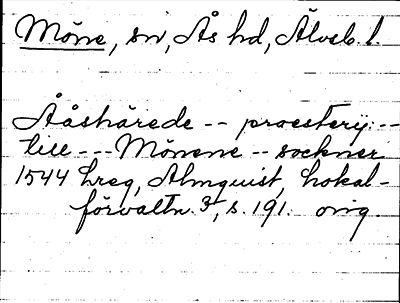 Möne, sn, Ås hd, Älvsb. l.
Ååshärede -- praestery --
till --- Mönene -- sockner
1544 hreg, Almquist, Lokal-
förvaltn. 3, s. 191. orig